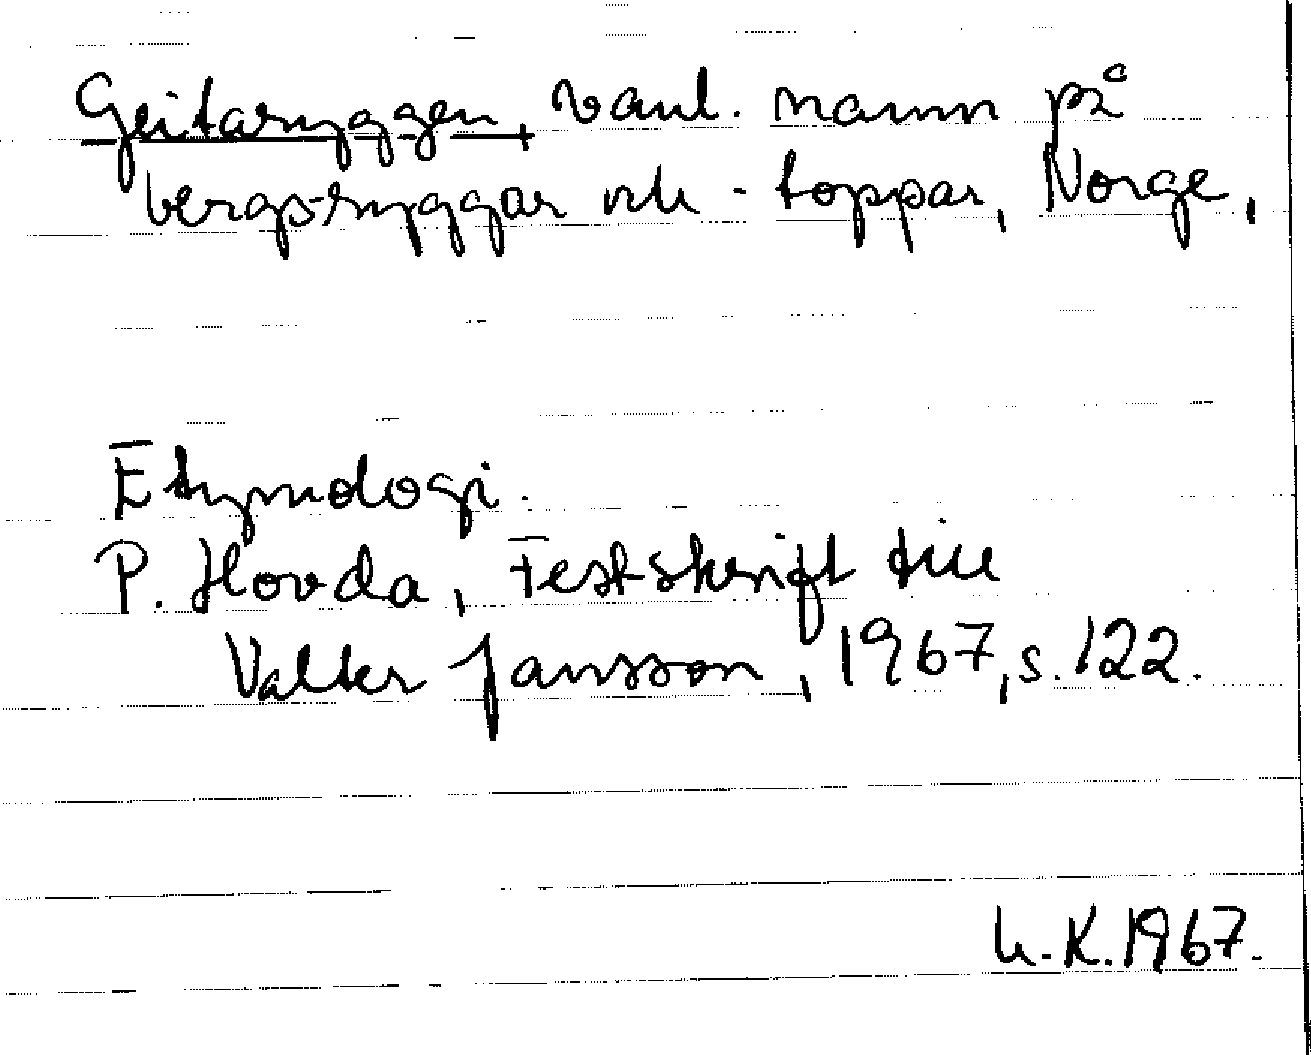 Geitaryggen, vanl. namn på
bergsryggar och -toppar, Norge,
Etymologi.
P. Hovda, Festskrift till
Valter Jansson, 1967, s. 122.
K. 1967.